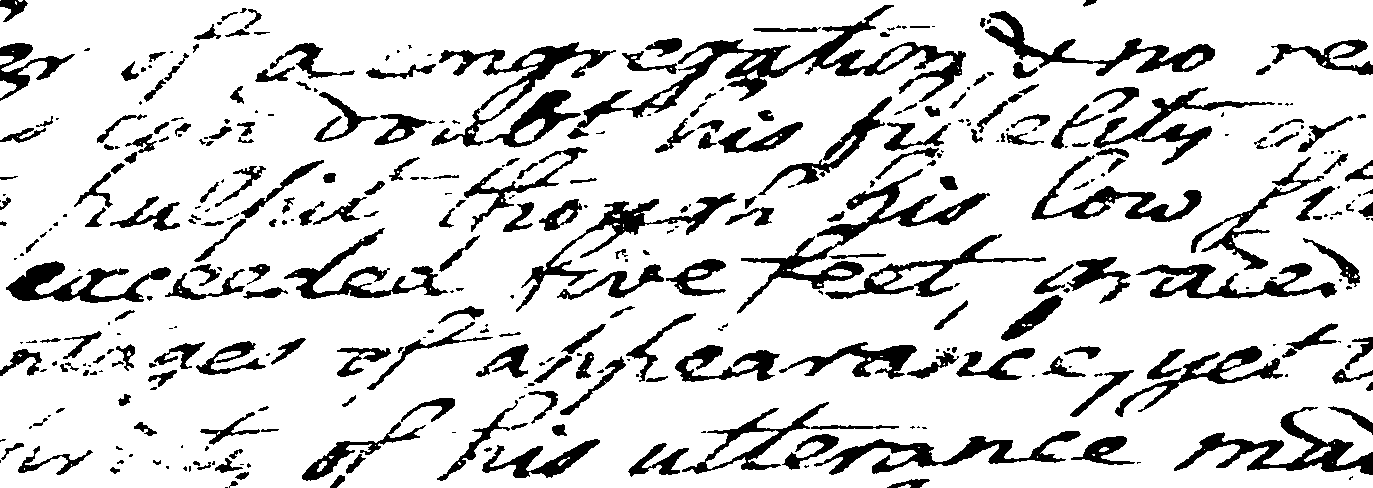 er of a congregation, & no re
s can doubt his fidelity or
pulpit though his low sta
exceeded five feet, graced
ntages of appearance, yet
of his utterance mad